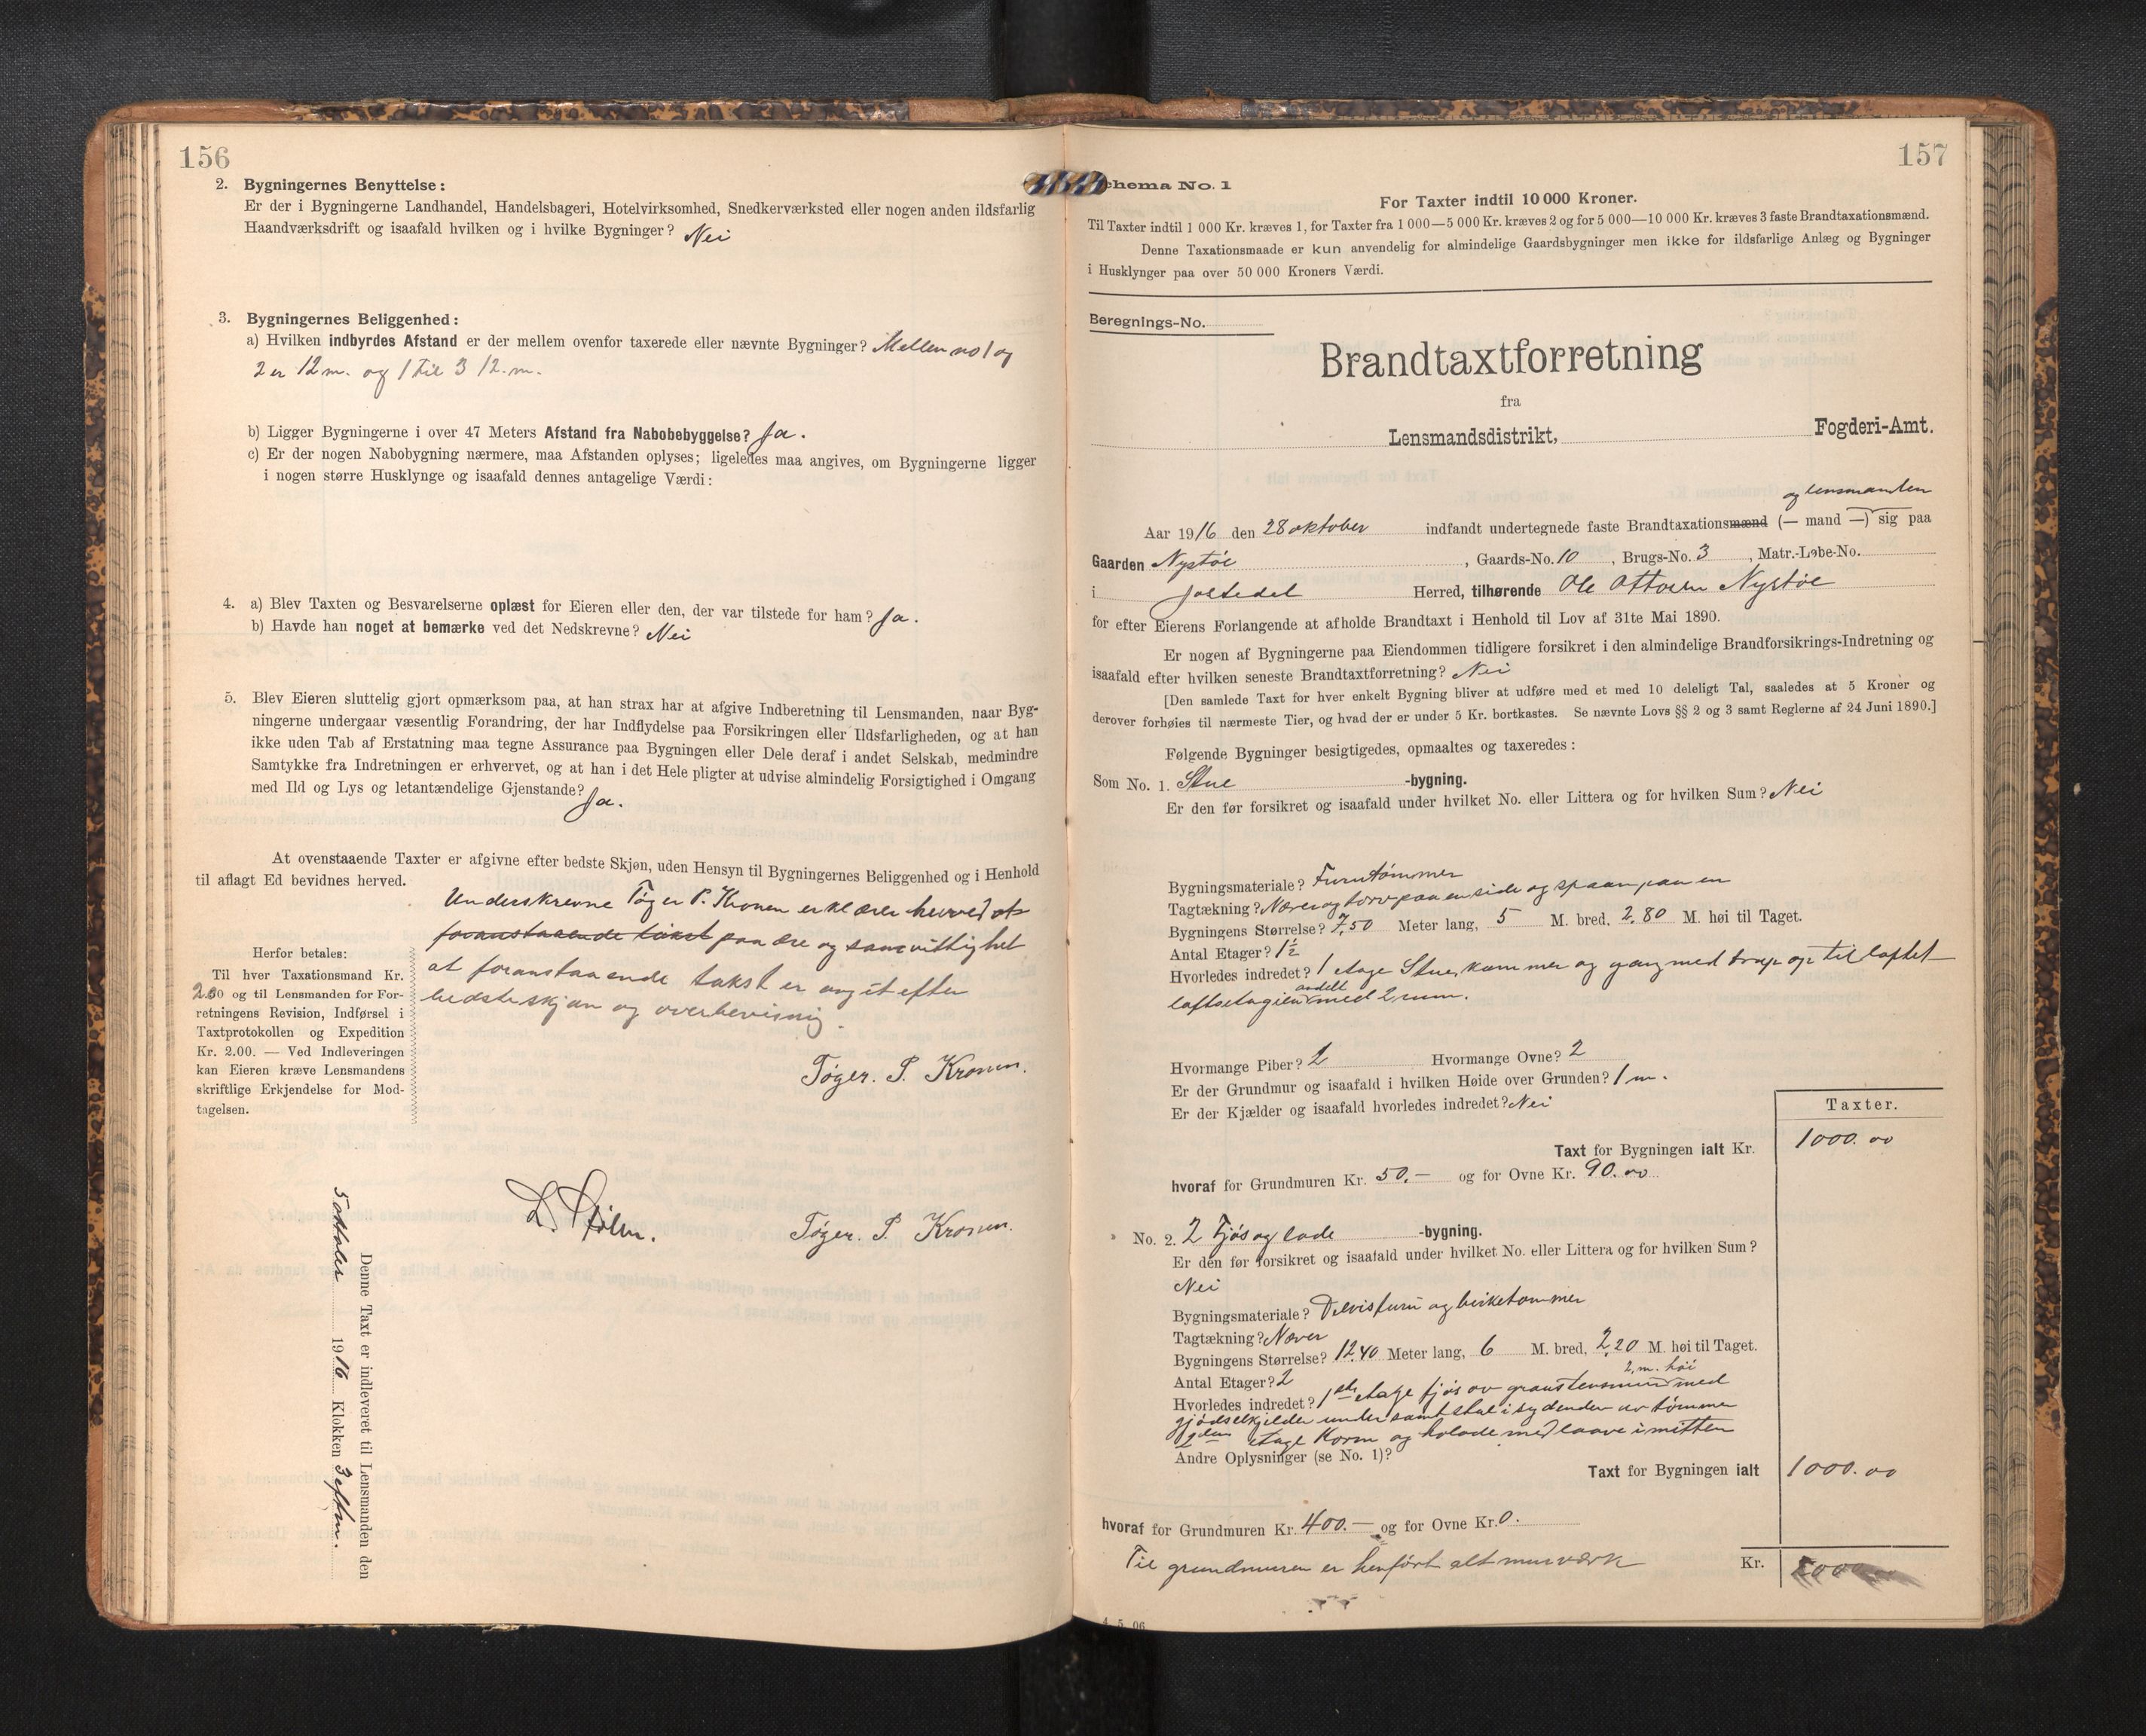 156
2. Bygningernes Benyttelse:
Er der i Bygningerne Landhandel, Handelsbageri, Hotelvirksomhed, Snedkerværksted eller nogen anden ildsfarlig
Haandværksdrift og isaafald hvilken og i hvilke Bygninger? Nei
3. Bygningernes Beliggenhed:
a) Hvilken indbyrdes Afstand er der mellem ovenfor taxerede eller nævnte Bygninger? Mellem no 1 og
2 er 12 m. og 1 til 3 12. m.
b) Ligger Bygningerne i over 47 Meters Afstand fra Nabobebyggelse? Ja.
c) Er der nogen Nabobygning nærmere, maa Afstanden oplyses; ligeledes maa angives, om Bygningerne ligger
i nogen større Husklynge og isaafald dennes antagelige Værdi:
4. a) Blev Taxten og Besvarelserne oplæst for Eieren eller den, der var tilstede for ham? Ja.
b) Havde han noget at bemærke ved det Nedskrevne? Nei
5. Blev Eieren sluttelig gjort opmærksom paa, at han strax har at afgive Indberetning til Lensmanden, naar Byg-
ningerne undergaar væsentlig Forandring, der har Indflydelse paa Forsikringen eller Ildsfarligheden, og at han
ikke uden Tab af Erstatning maa tegne Assurance paa Bygningen eller Dele deraf i andet Selskab, medmindre
Samtykke fra Indretningen er erhvervet, og at han i det Hele pligter at udvise almindelig Forsigtighed i Omgang
med Ild og Lys og letantændelige Gjenstande?
Ja.
At ovenstaaende Taxter er afgivne efter bedste Skjøn, uden Hensyn til Bygningernes Beliggenhed og i Henhold
til aflagt Ed bevidnes herved.
Underskrevne Tøger P. Kronen erklærer herved at
foranstaaende takst paa ære og samvittighet
at foranstaaende takst er avgit efter
bedste skjøn og overbevisnig.
Tøger. P. Kronen.
Herfor betales:
Til hver Taxationsmand Kr.
2.00 og til Lensmanden for For-
retningens Revision, Indførsel i
Taxtprotokollen og Expedition
Kr. 2.00. — Ved Indleveringen
kan Eieren kræve Lensmandens
skriftlige Erkjendelse for Mod-
tagelsen.
Tøger. P. Kronen.
Denne Taxt er indleveret til Lensmanden den
1916 Klokken 3 efterm.
157
chema No. 1
For Taxter indtil 10 000 Kroner.
Til Taxter indtil 1 000 Kr. kræves 1, for Taxter fra 1 000—5 000 Kr. kræves 2 og for 5 000—10 000 Kr. kræves 3 faste Brandtaxationsmænd.
Denne Taxationsmaade er kun anvendelig for almindelige Gaardsbygninger men ikke for ildsfarlige Anlæg og Bygninger
i Husklynger paa over 50 000 Kroners Værdi.
Beregnings-No.
Brandtaxtforretning
fra
Lensmandsdistrikt, Fogderi-Amt.
og lensmanden
Aar 1916 den 28 oktober indfandt undertegnede faste Brandtaxationsmænd (— mand —) sig paa
Gaarden Nystøe, Gaards-No. 10, Brugs-No. 3, Matr.-Løbe-No.
i Jostedal Herred, tilhørende Ole Ottosen Nystøe
for efter Eierens Forlangende at afholde Brandtaxt i Henhold til Lov af 31te Mai 1890.
Er nogen af Bygningerne paa Eiendommen tidligere forsikret i den almindelige Brandforsikrings-Indretning og
isaafald efter hvilken seneste Brandtaxtforretning? Nei
[Den samlede Taxt for hver enkelt Bygning bliver at udføre med et med 10 deleligt Tal, saaledes at 5 Kroner og
derover forhøies til nærmeste Tier, og hvad der er under 5 Kr. bortkastes. Se nævnte Lovs §§ 2 og 3 samt Reglerne af 24 Juni 1890.]
Følgende Bygninger besigtigedes, opmaaltes og taxeredes:
Som No. 1. Stue -bygning.
Er den før forsikret og isaafald under hvilket No. eller Littera og for hvilken Sum? Nei
Bygningsmateriale? Furutømmer
Tagtækning? Næver og torv paa en side og spaan paa en
Bygningens Størrelse? 7,50 Meter lang, 5 M. bred, 2,80 M. høi til Taget.
Antal Etager? 1½
Hvorledes indredet? 1 etage Stue, kammer og gang med trap op til loftet
andelt
loftsetagien med 2 rum.
Hvormange Piber? 1 Hvormange Ovne? 2
Er der Grundmur og isaafald i hvilken Høide over Grunden? 1 m.
Er der Kjælder og isaafald hvorledes indredet? Nei
Taxter.
Taxt for Bygningen ialt Kr. 1000.00
hvoraf for Grundmuren Kr. 50.— og for Ovne Kr. 90.00
No. 2. 2 Fjøs og lade -bygning.
Er den før forsikret og isaafald under hvilket No. eller Littera og for hvilken Sum?
Nei
Bygningsmateriale? Delvis furu og birketømmer
Tagtækning? Næver
Bygningens Størrelse? 12,40 Meter lang, 6 M. bred, 2,20 M. høi til Taget.
Antal Etager? 2
2. m. høi
Hvorledes indredet? 1ste etage fjøs av graastensmur med
gjødselkjelder under samt stal i sydenden av tømmer
2den etage Korn og holade med laave i mitten
Andre Oplysninger (se No. 1)?
Taxt for Bygningen ialt 1000.00
hvoraf for Grundmuren Kr. 400.— og for Ovne Kr. 0.
Til grundmuren er henført alt murværk
Kr. 2000
4. 5. 06